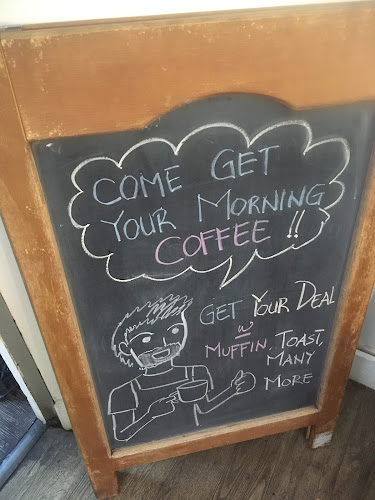 COME GET
YOUR MORNING
COFFEE !!
GET YOUR DEAL
w/
MUFFIN, TOAST,
MANY
MORE